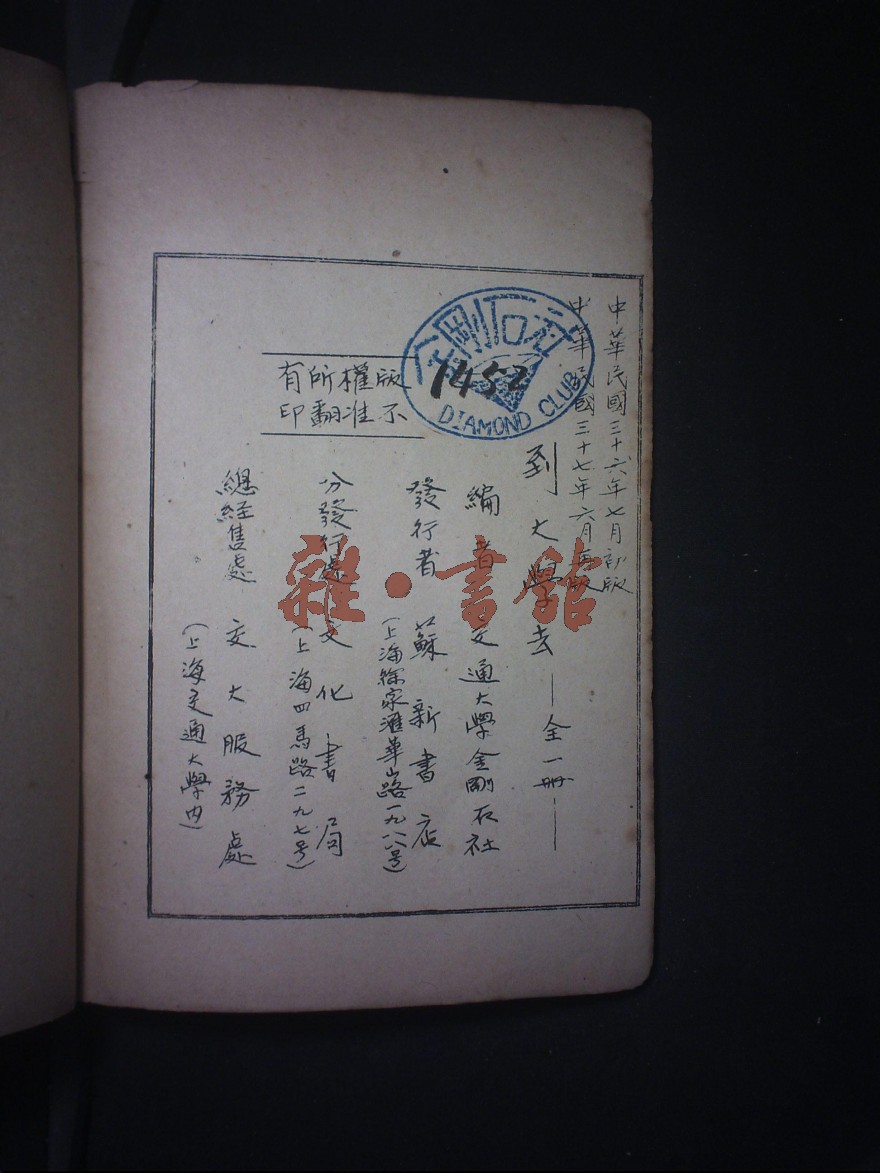 中華民國三十六年七月初版
中華民國三十七年六月再版
金剛石社
1452
DIAMOND CLUB
版權所有
不准翻印
到大學去—全一冊—
編者 交通大學金剛石社
發行者 蘇新書店
(上海徐家匯華山路一九八八号)
分發行處 文化書局
(上海四馬路二九七号)
總経售處 交大服務處
(上海交通大學内)
雜·書館